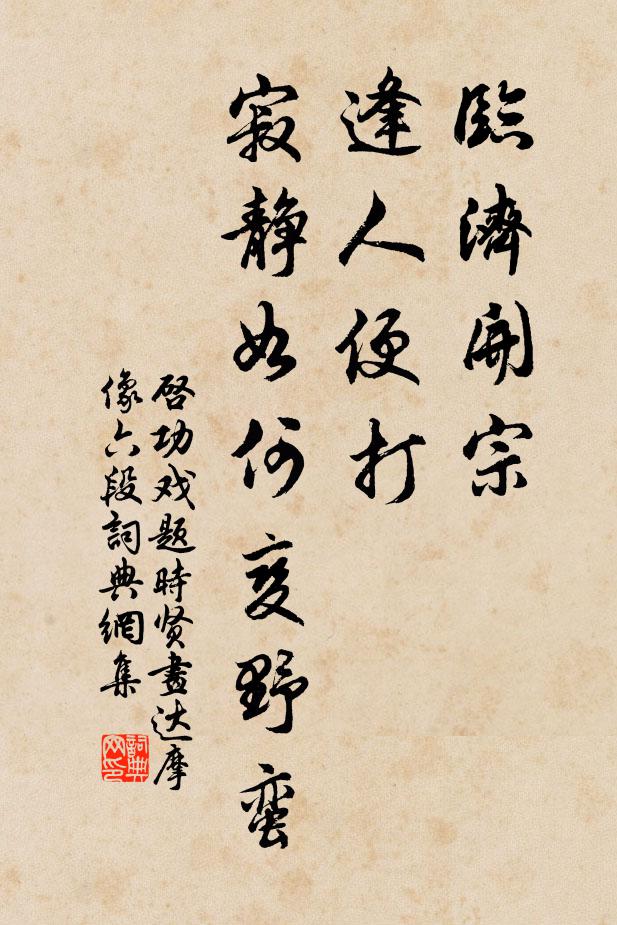 臨濟開宗
逢人便打
寂靜如何变野蛮
启功戏题時贤畫达摩
像六段詞典網集
詞典网印